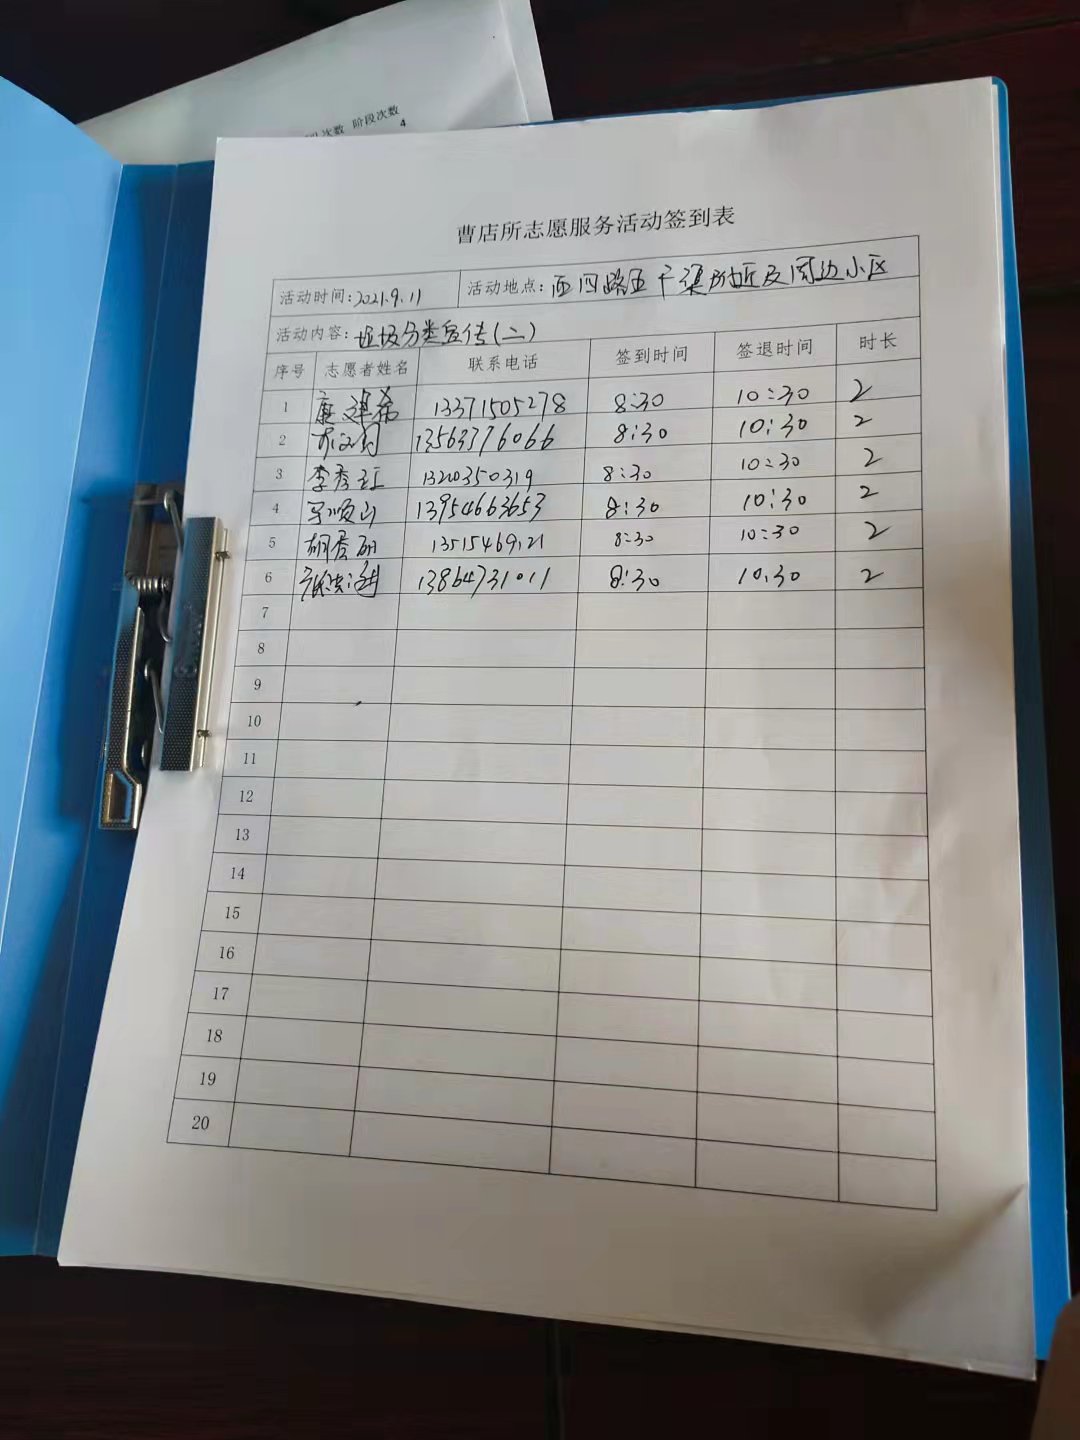 次数 阶段次数
4
曹店所志愿服务活动签到表
活动时间:2021.9.11 活动地点:西四路五干渠附近及周边小区
活动内容:垃圾分类宣传(二)
序号 志愿者姓名 联系电话 签到时间 签退时间 时长
1 13371505278 8:30 10:30 2
2 13563376066 8:30 10:30 2
3 李秀红 13200350319 8:30 10:30 2
4 13954663653 8:30 10:30 2
5 8:30 10:30 2
6 13864731011 8:30 10:30 2
7
8
9
10
11
12
13
14
15
16
17
18
19
20